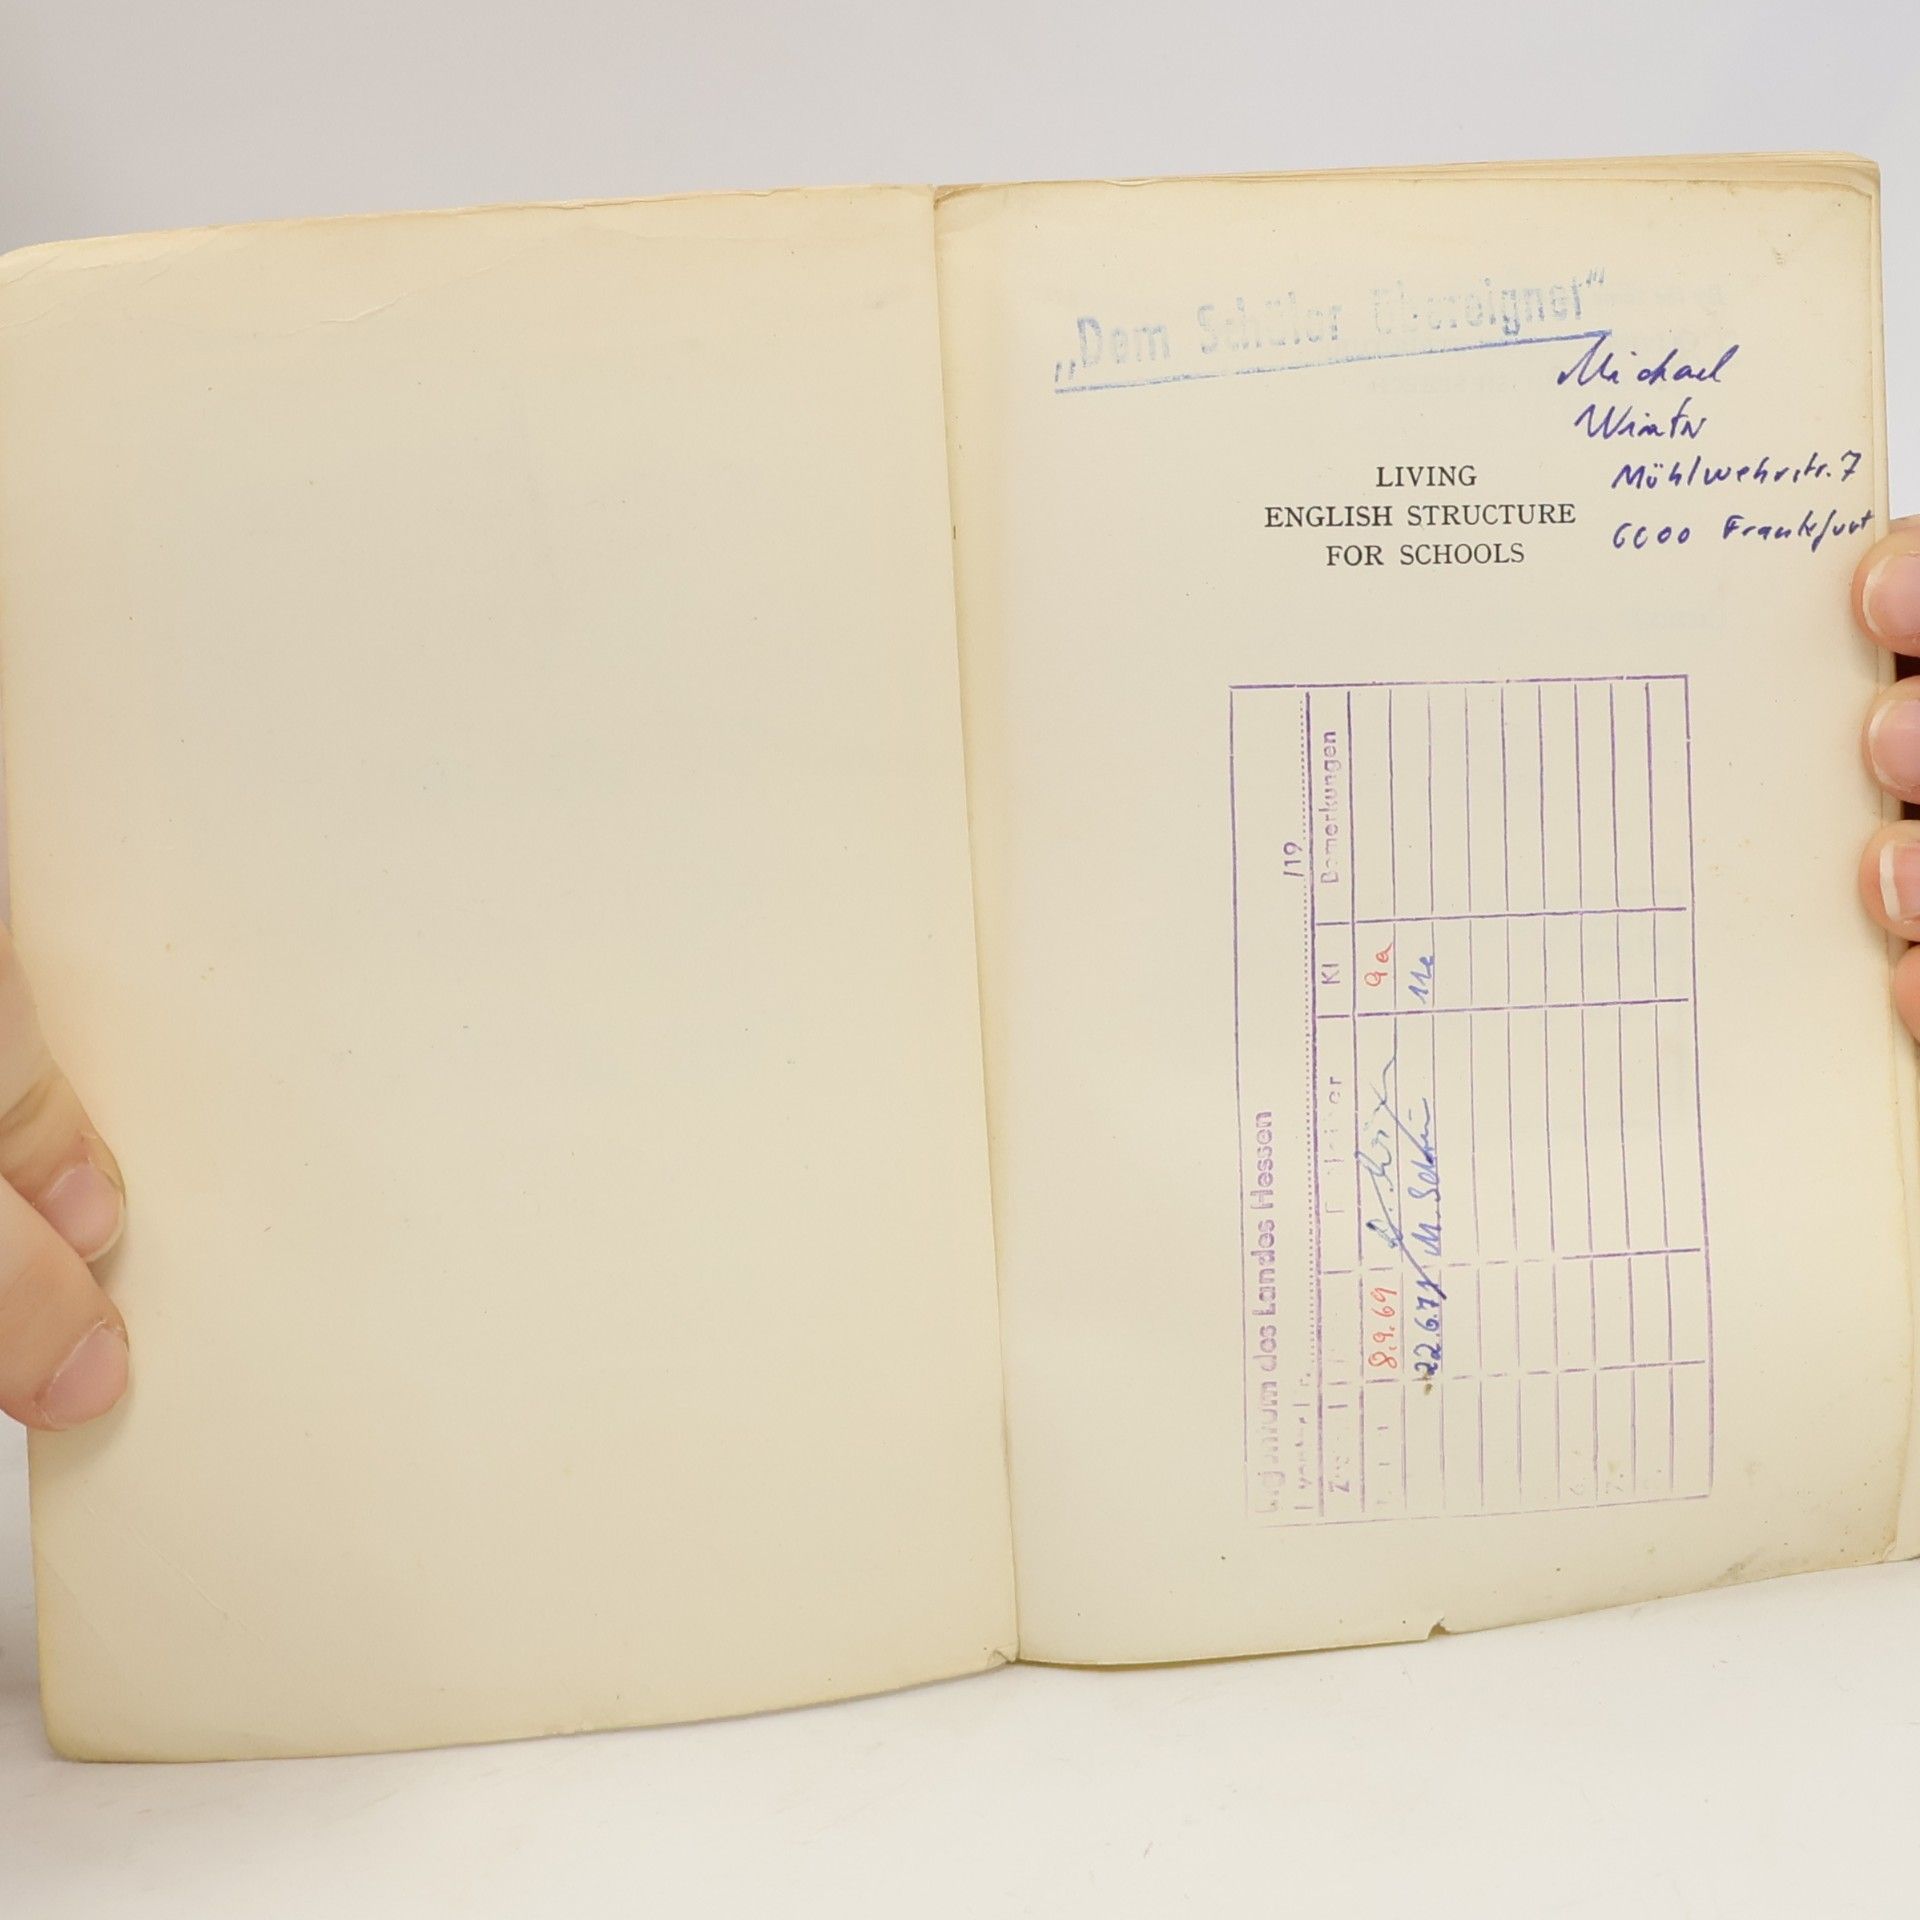 „Dem Schüler übereignet“
Michael
Winter
Mühlwehrstr. 7
6000 Frankfurt
LIVING
ENGLISH STRUCTURE
FOR SCHOOLS
Eigentum des Landes Hessen
/19
Kl Bemerkungen
8.9.69 9a
22.6.71 M. 11e
6.
7.